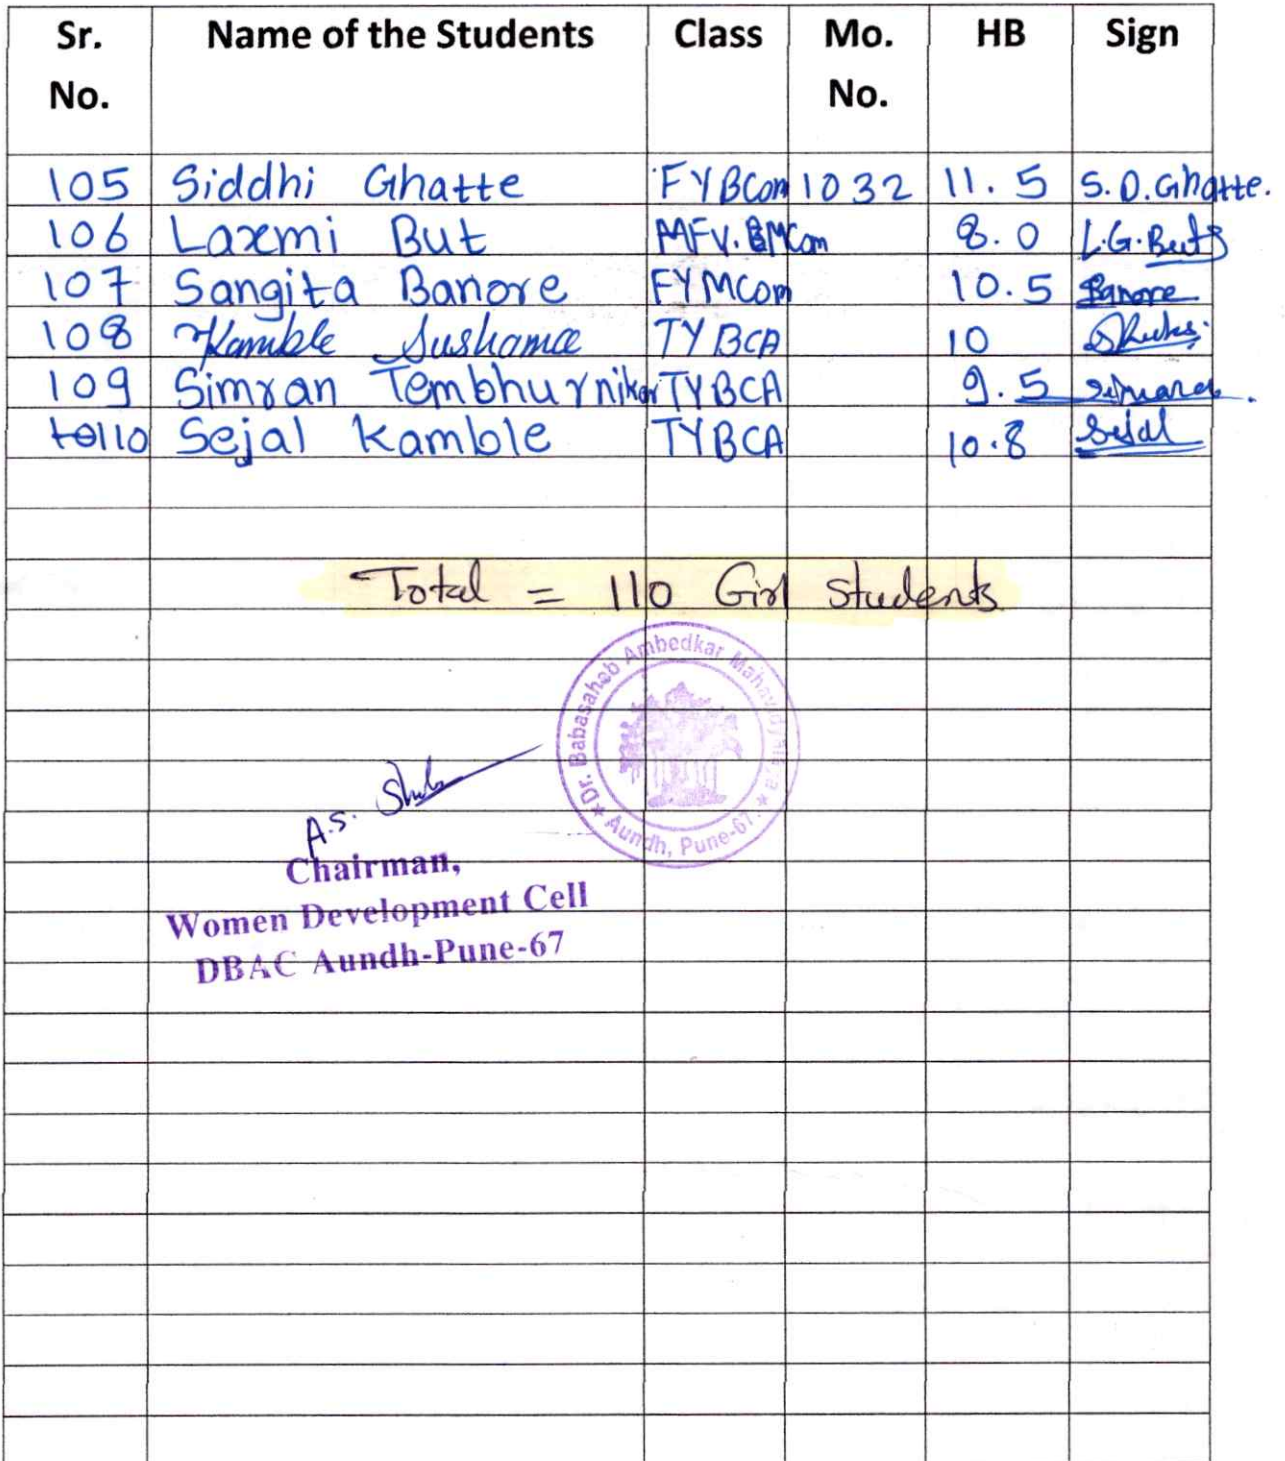 Sr. No. Name of the Students Class Mo. No. HB Sign
105 Siddhi Ghatte FYBCom 1032 11.5 S.D.Ghatte.
106 Laxmi But FY. MCom 8.0 L.G.But
107 Sangita Banore FYMCom 10.5 Banore
108 Kamble Sushama TYBCA 10
109 Simran Tembhurnikar TYBCA 9.5
110 Sejal Kamble TYBCA 10.8 Sejal
Total = 110 Girl Students
Dr. Babasaheb Ambedkar Mahavidyalaya ★ Aundh, Pune-67. ★
A.S.
Chairman,
Women Development Cell
DBAC Aundh-Pune-67